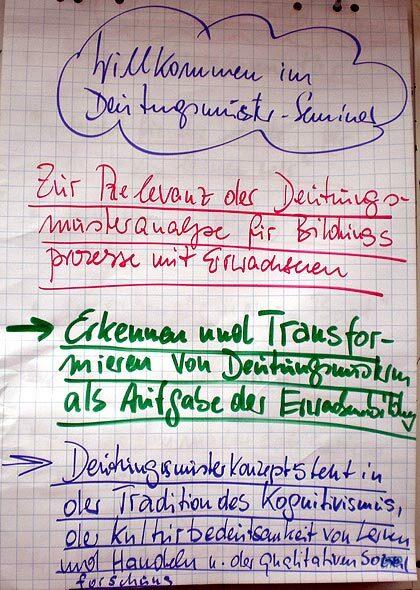 Willkommen im
Deutungsmuster-Seminar
Zur Relevanz der Deutungs-
musteranalyse für Bildungs
prozesse mit Erwachsenen
→ Erkennen und Transfor-
mieren von Deutungsmustern
als Aufgabe der Erwachsenenbildung
⇒ Deutungsmusterkonzept steht in
der Tradition des Kognitivismus,
der Kulturbedeutsamkeit von Lernen
und Handeln u. der qualitativen Sozial
forschung